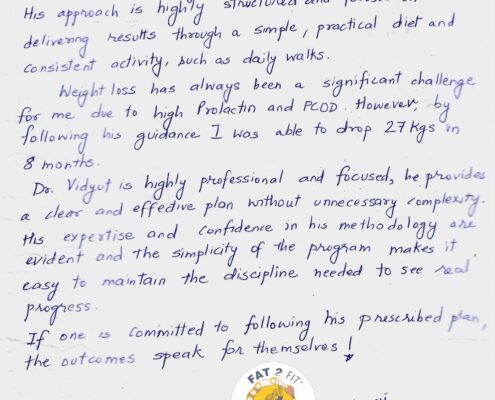 His approach is highly structured and focused on
delivering results through a simple, practical diet and
consistent activity, such as daily walks.
Weight loss has always been a significant challenge
for me due to high Prolactin and PCOD. However, by
following his guidance I was able to drop 27kgs in
8 months.
Dr. Vidyut is highly professional and focused, he provides
a clear and effective plan without unnecessary complexity.
His expertise and confidence in his methodology are
evident and the simplicity of the program makes it
easy to maintain the discipline needed to see real
progress.
If one is committed to following his prescribed plan,
the outcomes speak for themselves!
FAT 2 FIT